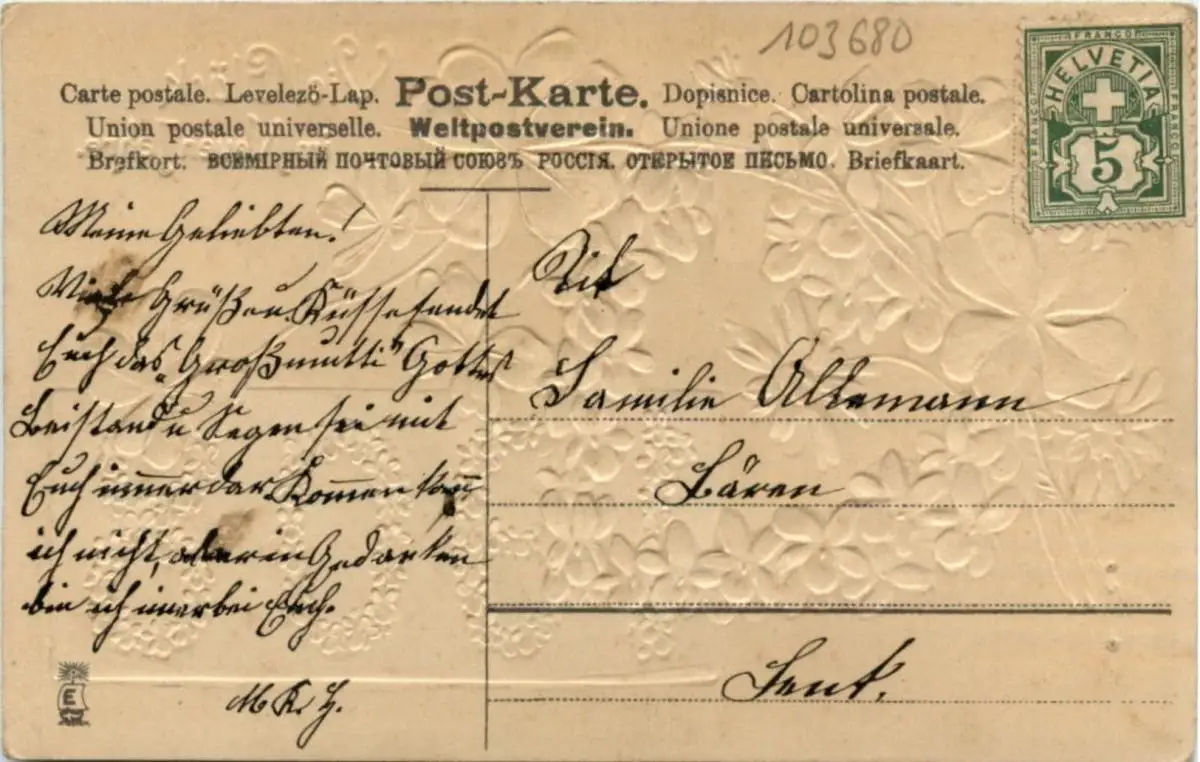 103680
FRANCO
HELVETIA
5
Carte postale. Levelező-Lap. Post-Karte. Dopisnice. Cartolina postale.
Union postale universelle. Weltpostverein. Unione postale universale.
Brefkort. ВСЕМІРНЫЙ ПОЧТОВЫЙ СОЮЗЪ РОССІЯ. ОТКРЫТОЕ ПИСЬМО. Briefkaart.
Meine Geliebten!
Viele Grüße u Küsse sendet
Euch das „Großmutti" Gottes
Beistand u Segen sei mit
Euch im̄erdar Kom̄en kan̄
ich nicht, aber in Gedanken
bin ich im̄er bei Euch.
M K. H.
Familie Allemann
Bären
Sent.
E